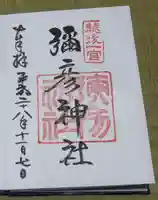 越後一宮
彌彦神社
奉拝 平成二八年十一月七日